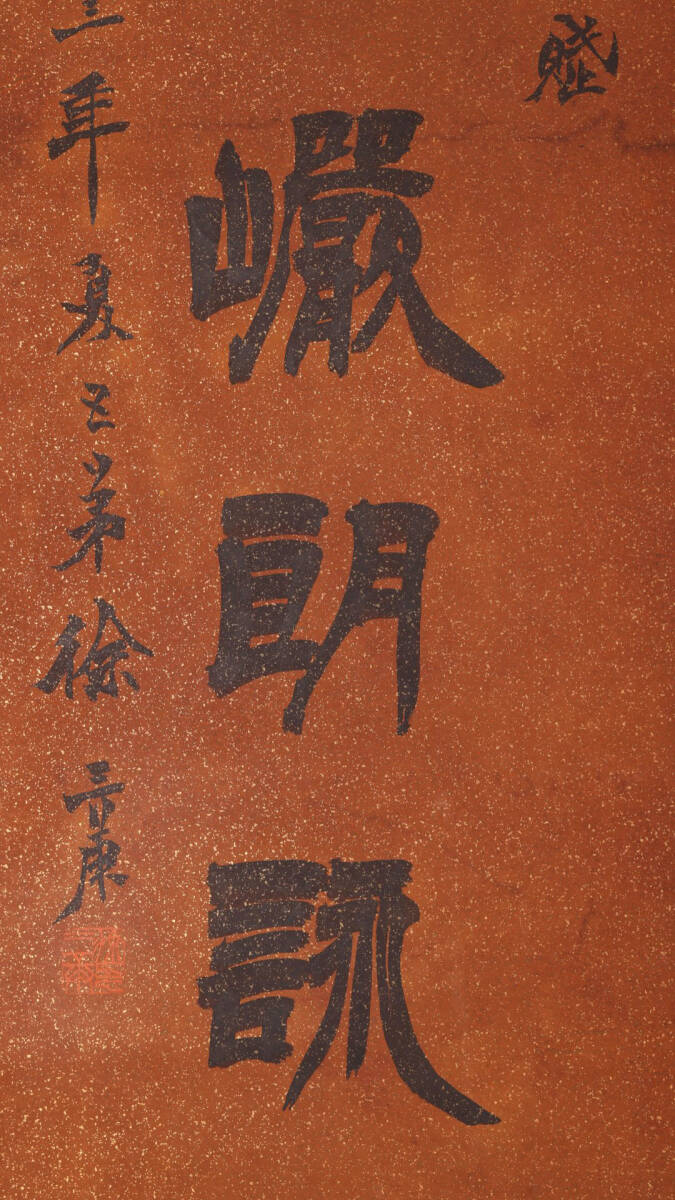 巗朗詠
三年夏五弟徐三庚